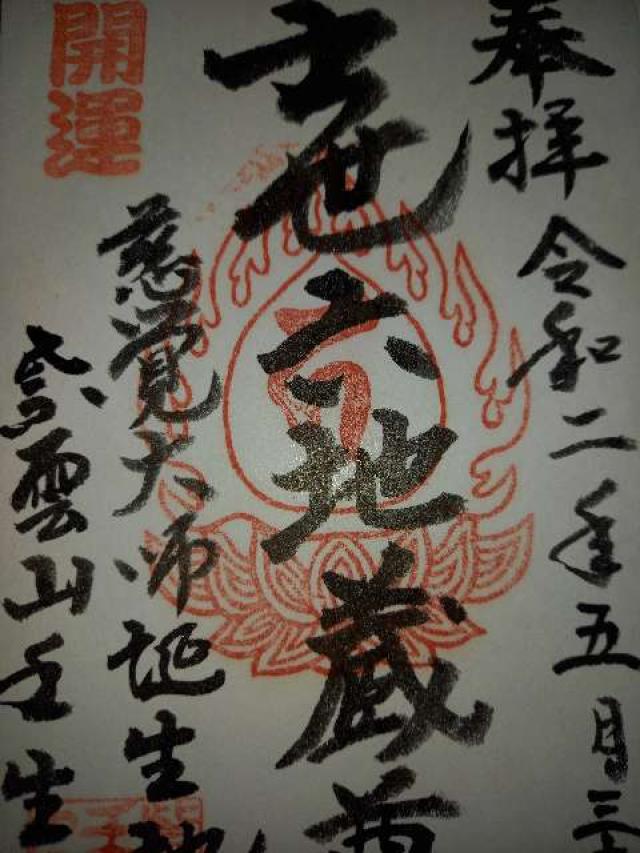 奉拝 令和二年五月三十
世六地蔵尊
開運
慈覚大師誕生地
紫雲山壬生